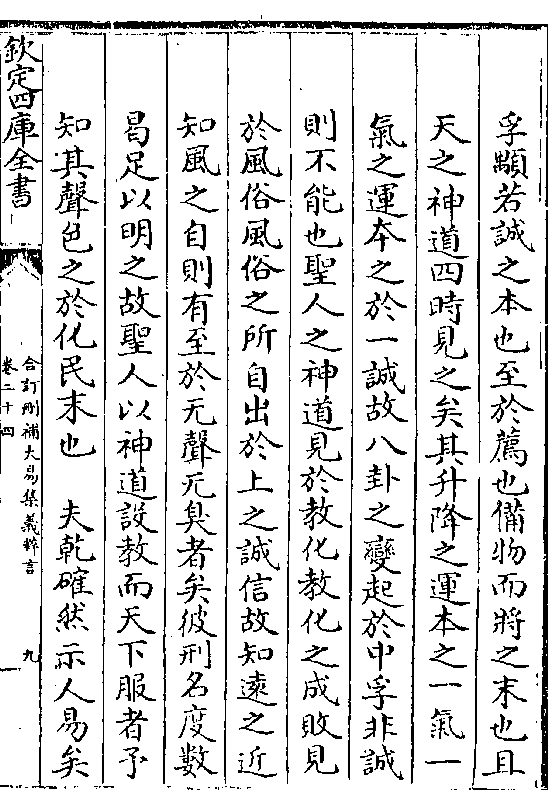 孚顒若誠之本也至於薦也備物而將之末也且
天之神道四時見之矣其升降之運本之一氣一
氣之運夲之於一誠故八卦之變起於中孚非誠
則不能也聖人之神道見於教化教化之成敗見
於風俗風俗之所自出於上之誠信故知遠之近
知風之自則有至於无聲无臭者矣彼刑名度數
曷足以明之故聖人以神道設教而天下服者予
知其聲色之於化民末也　夫乾確然示人易矣
欽定四庫全書
合訂刪補大易集義粹言
卷二十四
九